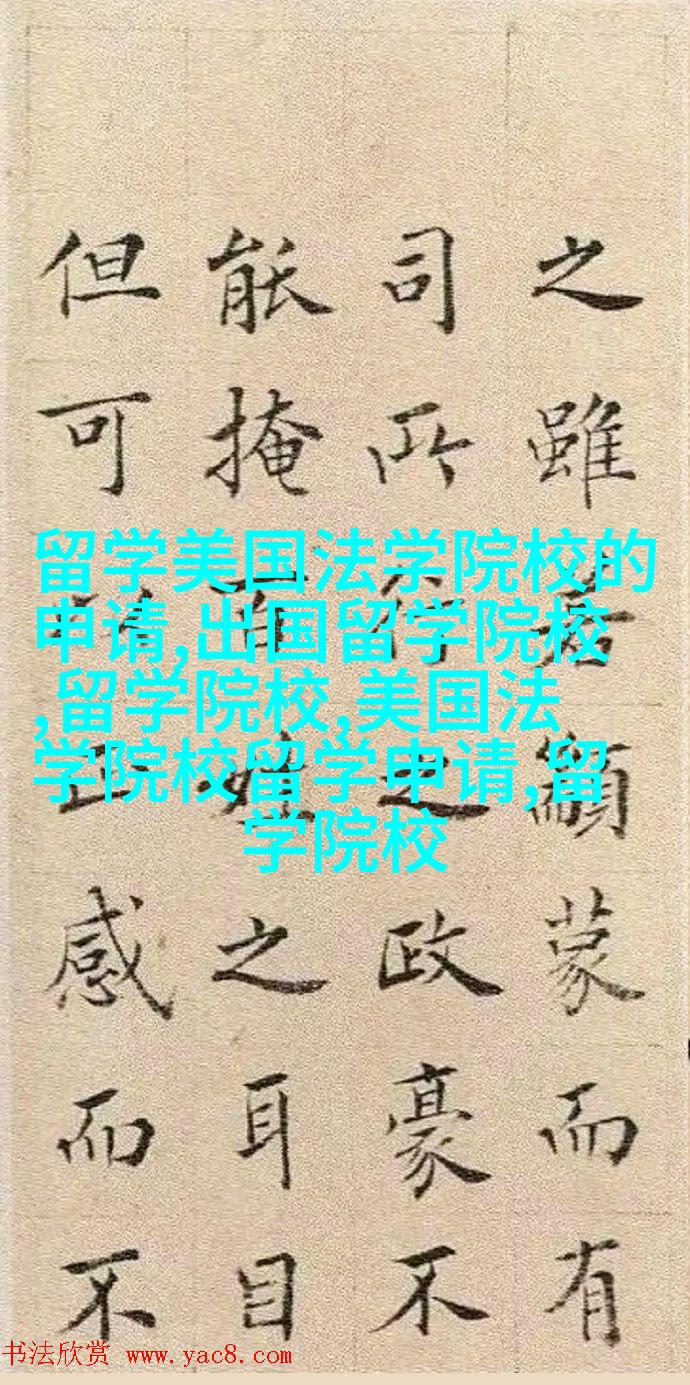 之雖顓蒙而有
司所之政豪不
能掩百之耳目
但可感而不
留学美国法学院校的
申请,出国留学院校
,留学院校,美国法
学院校留学申请,留
学院校
书法欣赏 www.yac8.com